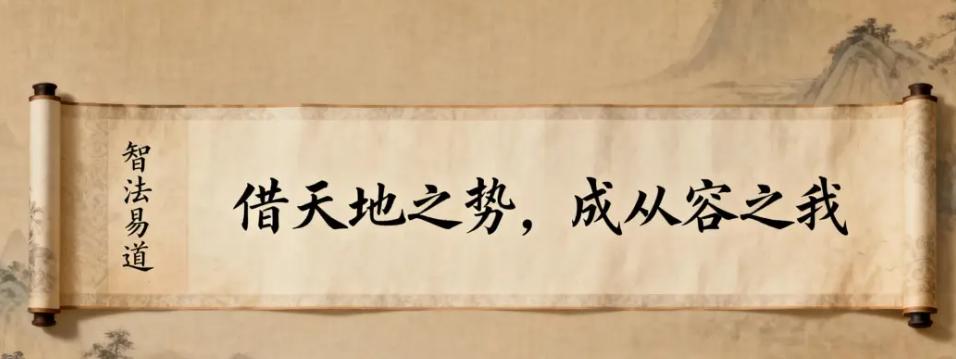 智法易道
借天地之势，成从容之我